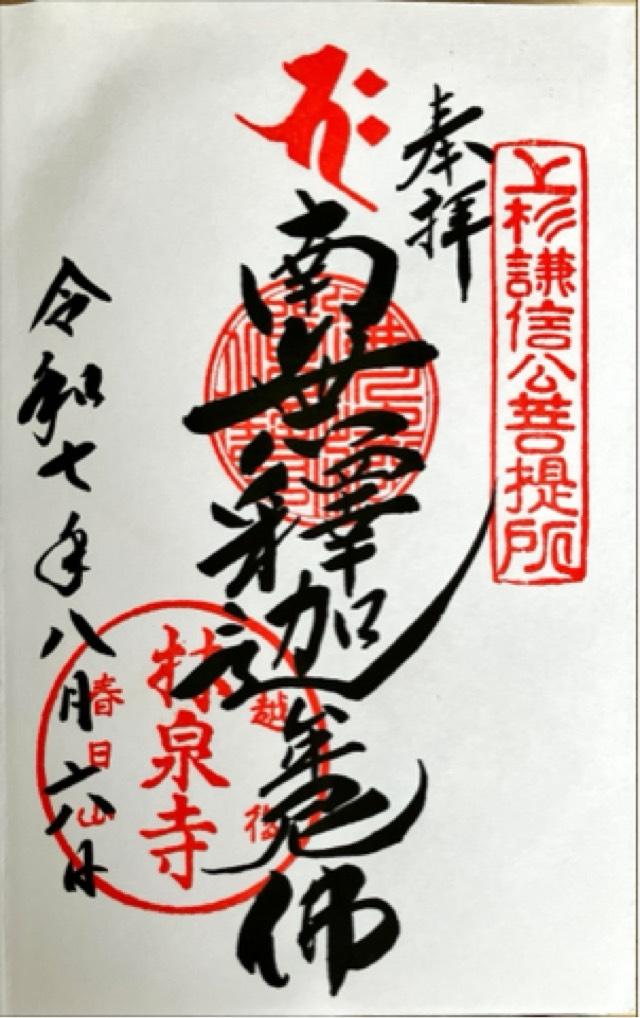 上杉謙信公菩提所
奉拝
南無釋迦牟尼佛
越後
林泉寺
春日山
令和七年八月六日